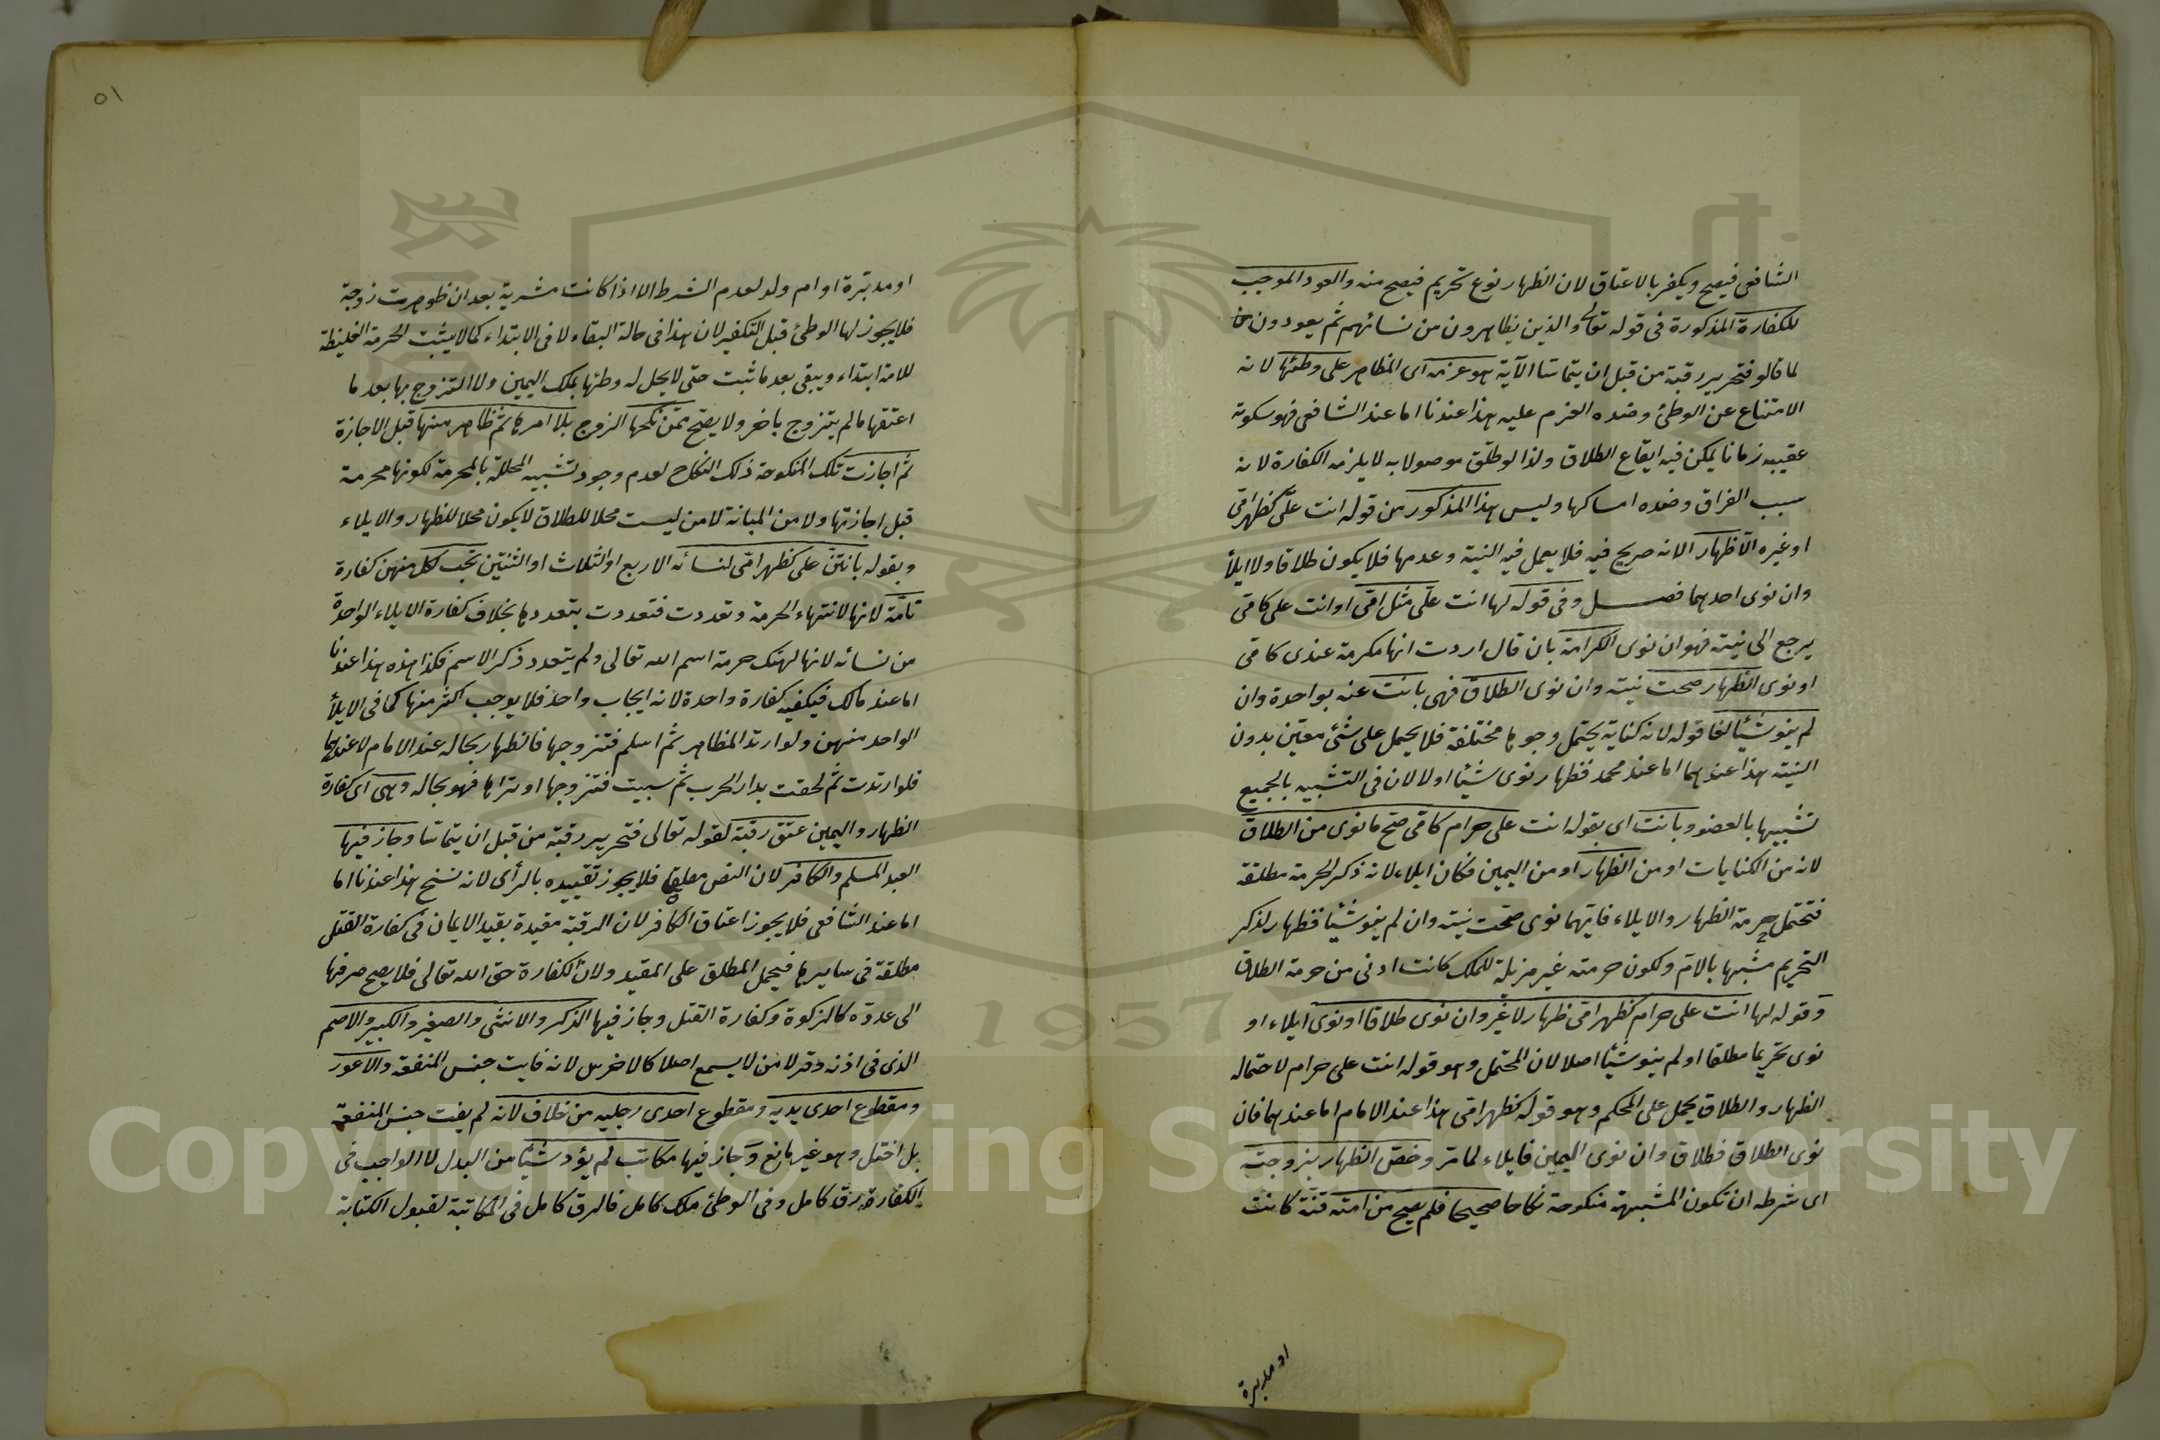 الشافعى فيصح ويكفر بالاعتاق لان الظهار نوع تحريم فيصح منه والعود الموجب
للكفارة المذكورة فى قوله تعالى والذين يظاهرون من نسائهم ثم يعودون
لما قالو فتحرير رقبة من قبل ان يتماسا الآية هو عزمه اى المظاهر على وطئها لانه
الامتناع عن الوطئ وضده العزم عليه هذا عندنا اما عند الشافعى فهو سكوته
عقيبه زمانا يمكن فيه ايقاع الطلاق ولذا لو طلق موصولا به لا يلزمه الكفارة لانه
سبب الفراق وضده امساكها وليس هذا المذكور من قوله انت علىّ كظهر امّى
او غيره الا ظهار الانه صريح فيه فلا يعمل فيه النية وعدمها فلا يكون طلاقا ولا ايلأ
وان نوى احدهما فصل وفى قوله لها انت علىّ مثل امّى او انت على كامّى
يرجع الى نيته فهو ان نوى الكرامة بان قال اردت انها مكرمة عندى كامى
او نوى الظهار صحت نيته وان نوى الطلاق فهى بانت عنه بواحدة وان
لم ينو شيئا لغا قوله لانه كناية يحتمل وجوها مختلفة فلا يحمل على شئ معين بدون
النية هذا عندهما اما عند محمد فظهار نوى شيئا اولا لان فى التشبيه بالجميع
تشبيها بالعضو وبانت اى بقوله انت على حرام كامى صح ما نوى من الطلاق
لانه من الكنايات او من الظهار او من اليمين فكان ايلاء لانه ذكر الحرمة مطلقة
فتحتمل حرمة الظهار والايلاء فايهما نوى صحت نيته وان لم ينو شيئا فظهار لذكر
التحريم مشبها بالام ولكون حرمته غير مزيلة للملك كانت ادنى من حرمة الطلاق
وقوله لها انت على حرام كظهر امى ظهار لا غير وان نوى طلاقا او نوى ايلاء او
نوى تحريما مطلقا او لم ينو شيئا اصلا لان المحتمل وهو قوله انت على حرام لاحتماله
الظهار والطلاق يحمل على المحكم وهو قوله كظهر امى هذا عند الامام اما عندهما فان
نوى الطلاق فطلاق وان نوى اليمين فايلاء لما مرّ وخصّ الظهار بزوجته
اى شرطه ان تكون المشبهة منكوحة نكاحا صحيحا فلم يصح من امته قنة كانت
او مدبرة
٥١
او مدبّرة او ام ولد لعدم الشرط الا اذا كانت مشرية بعد ان ظوهرت زوجة
فلا يجوز لها الوطئ قبل التكفير لان هذا فى حالة البقاء لا فى الابتداء كما لا يثبت الحرمة الغليظة
للامة ابتداء ويبقى بعد ما ثبت حتى لا يحل له وطئها بملك اليمين ولا التزوج بها بعد ما
اعتقها ما لم يتزوج باخر ولا يصحّ ممّن نكحها الزوج بلا امرها ثم ظاهر منها قبل الاجازة
ثم اجازت تلك المنكوحة ذلك النكاح لعدم وجود تشبيه المحللة بالمحرمة لكونها محرمة
قبل اجازتها ولا من المبانة لا من ليست محلا للطلاق لا يكون محلا للظهار والايلاء
وبقوله بانتن على كظهر امّى لنسائه الاربع او الثلاث او الثنتين تجب لكل منهن كفارة
تامّة لانها لانتهاء الحرمة وتعددت فتعددت بتعددها بخلاف كفارة الايلاء الواحدة
من نسائه لانها لهتك حرمة اسم الله تعالى ولم يتعدد ذكر الاسم فكذا هذه هذا عندنا
اما عند مالك فيكفيه كفارة واحدة لانه ايجاب واحد فلا يوجب اكثر منها كما فى الايلأ
الواحد منهن ولو ارتد المظاهر ثم اسلم فتزوجها فالظهار بحاله عند الامام لا عندهما
فلو ارتدت ثم لحقت بدار الحرب ثم سبيت فتزوجها او تراها فهو بحاله وهى اى كفارة
الظهار واليمين عتق رقبة لقوله تعالى فتحرير رقبة من قبل ان يتماسا وجاز فيها
العبد المسلم والكافر لان النص مطلق فلا يجوز تقييده بالرأى لانه نسخ هذا عندنا اما
اما عند الشافعى فلا يجوز اعتاق الكافر لان الرقبة مقيدة بقيد الايمان فى كفارة القتل
مطلقة فى سايرها فيحمل المطلق على المقيد ولان الكفارة حق الله تعالى فلا يصح صرفها
الى عدوّه كالزكوة وكفارة القتل وجاز فيها الذكر والانثى والصغير والكبير والاصم
الذى فى اذنه وقر لا من لا يسمع اصلا كالاخرس لانه فايت جنس المنفعة والاعور
ومقطوع احدى يديه ومقطوع احدى رجليه من خلاف لانه لم يفت جنس المنفعة
بل اختل وهو غير مانع وجاز فيها مكاتب لم يؤد شيئا من البدل لا الواجب فى
الكفارة رق كامل وفى الوطئ ملك كامل فالرق كامل فى المكاتبة لقبول الكتابة
1957
Copyright © King Saud University